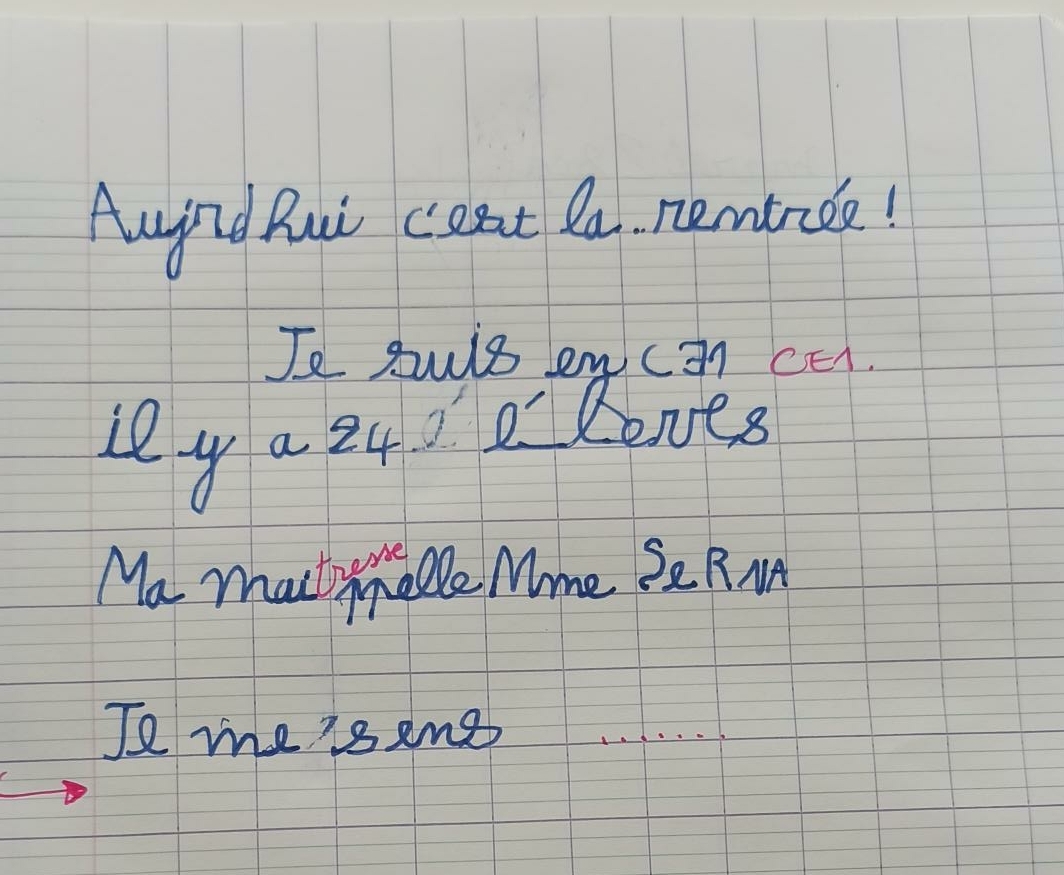 Aujrdhui c'est la..rentrée!
Je suis en CE1 CE1.
il y a 24 é léves
Ma maitresse ppelle Mme SeRNA
Je me sens .......